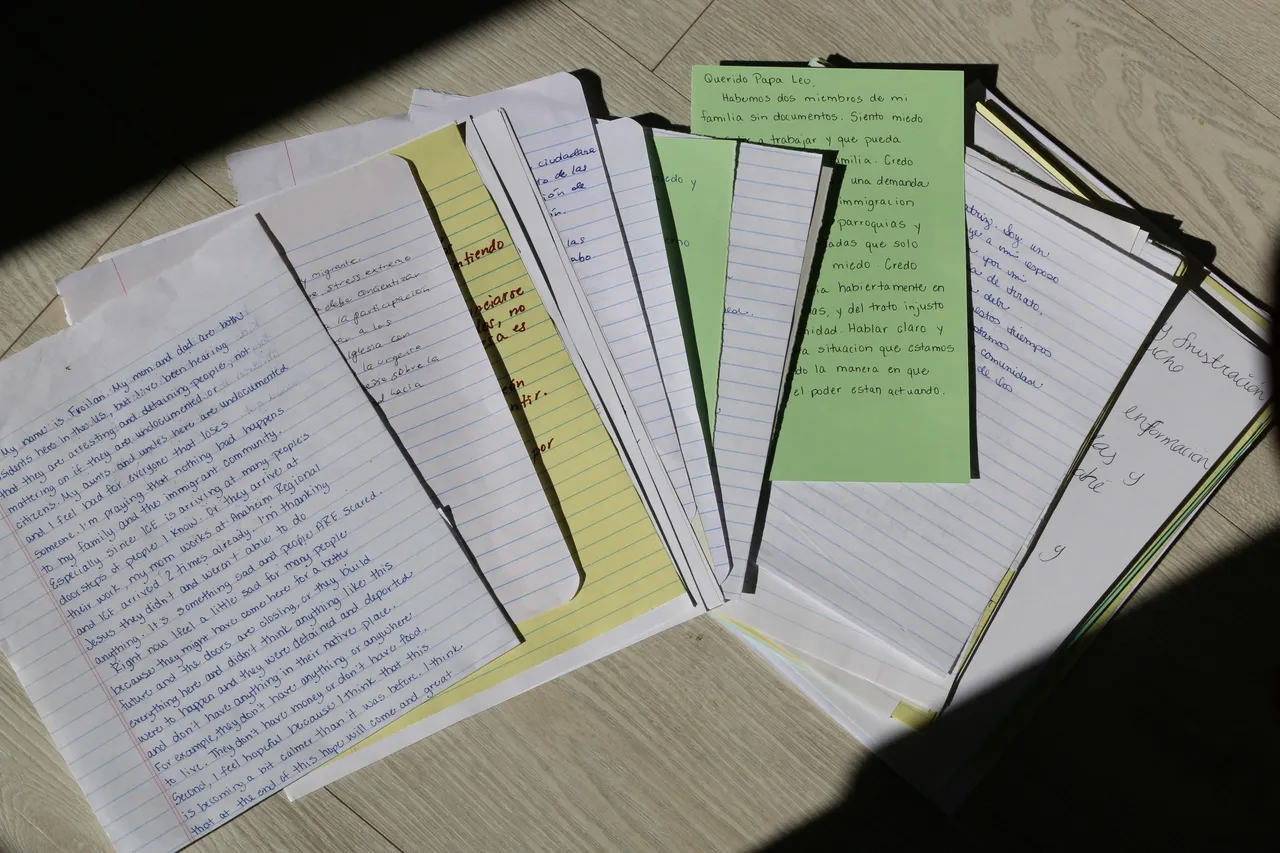 My name is Froilan. My mom and dad are both
sidents here in the US, but I've been hearing
that they are arresting and detaining people, not
mattering on if they are undocumented or
citizens. My aunts and uncles here are undocumented
and I feel bad for everyone that loses
someone. I'm praying that nothing bad happens
to my family and the immigrant community.
Especially since ICE is arriving at many people's
doorsteps of people I know. Or they arrive at
their work, my mom works at Anaheim Regional
and ICE arrived 2 times already. I'm thanking
Jesus they didn't and weren't able to do
anything. It's something sad and people ARE scared.
Right now I feel a little sad for many people
because they might have come here for a better
future and the doors are closing, or they build
everything here and didn't think anything like this
were to happen and they were detained and deported
and don't have anything in their native place.
For example, they don't have anything or anywhere
to live. They don't have money or don't have food.
Second, I feel hopeful because I think that this
is becoming a bit calmer than it was before. I think
that at the end of this hope will come and great
y migrante
stress extremo
debe concientizar
la participación
a los
iglesia con
la urgente
sobre la
hacia
ntiendo
nciarse
os, no
ta es
tir.
por
ciudadasa
to de las
ión de
n.
las
abo
edo y
Querido Papa Leo,
Habemos dos miembros de mi
familia sin documentos. Siento miedo
a trabajar y que pueda
milia. Credo
una demanda
immigracion
parroquias y
adas que solo
miedo. Credo
ia habiertamente en
as, y del trato injusto
nidad. Hablar claro y
a situacion que estamos
do la manera en que
el poder estan actuando.
atriz. Soy un
ye a mi esposo
por mi
a de tirato,
debi
estos tiempos
stamos
comunidad
de los
y frustración
icho
enformacion
las y
abié
y